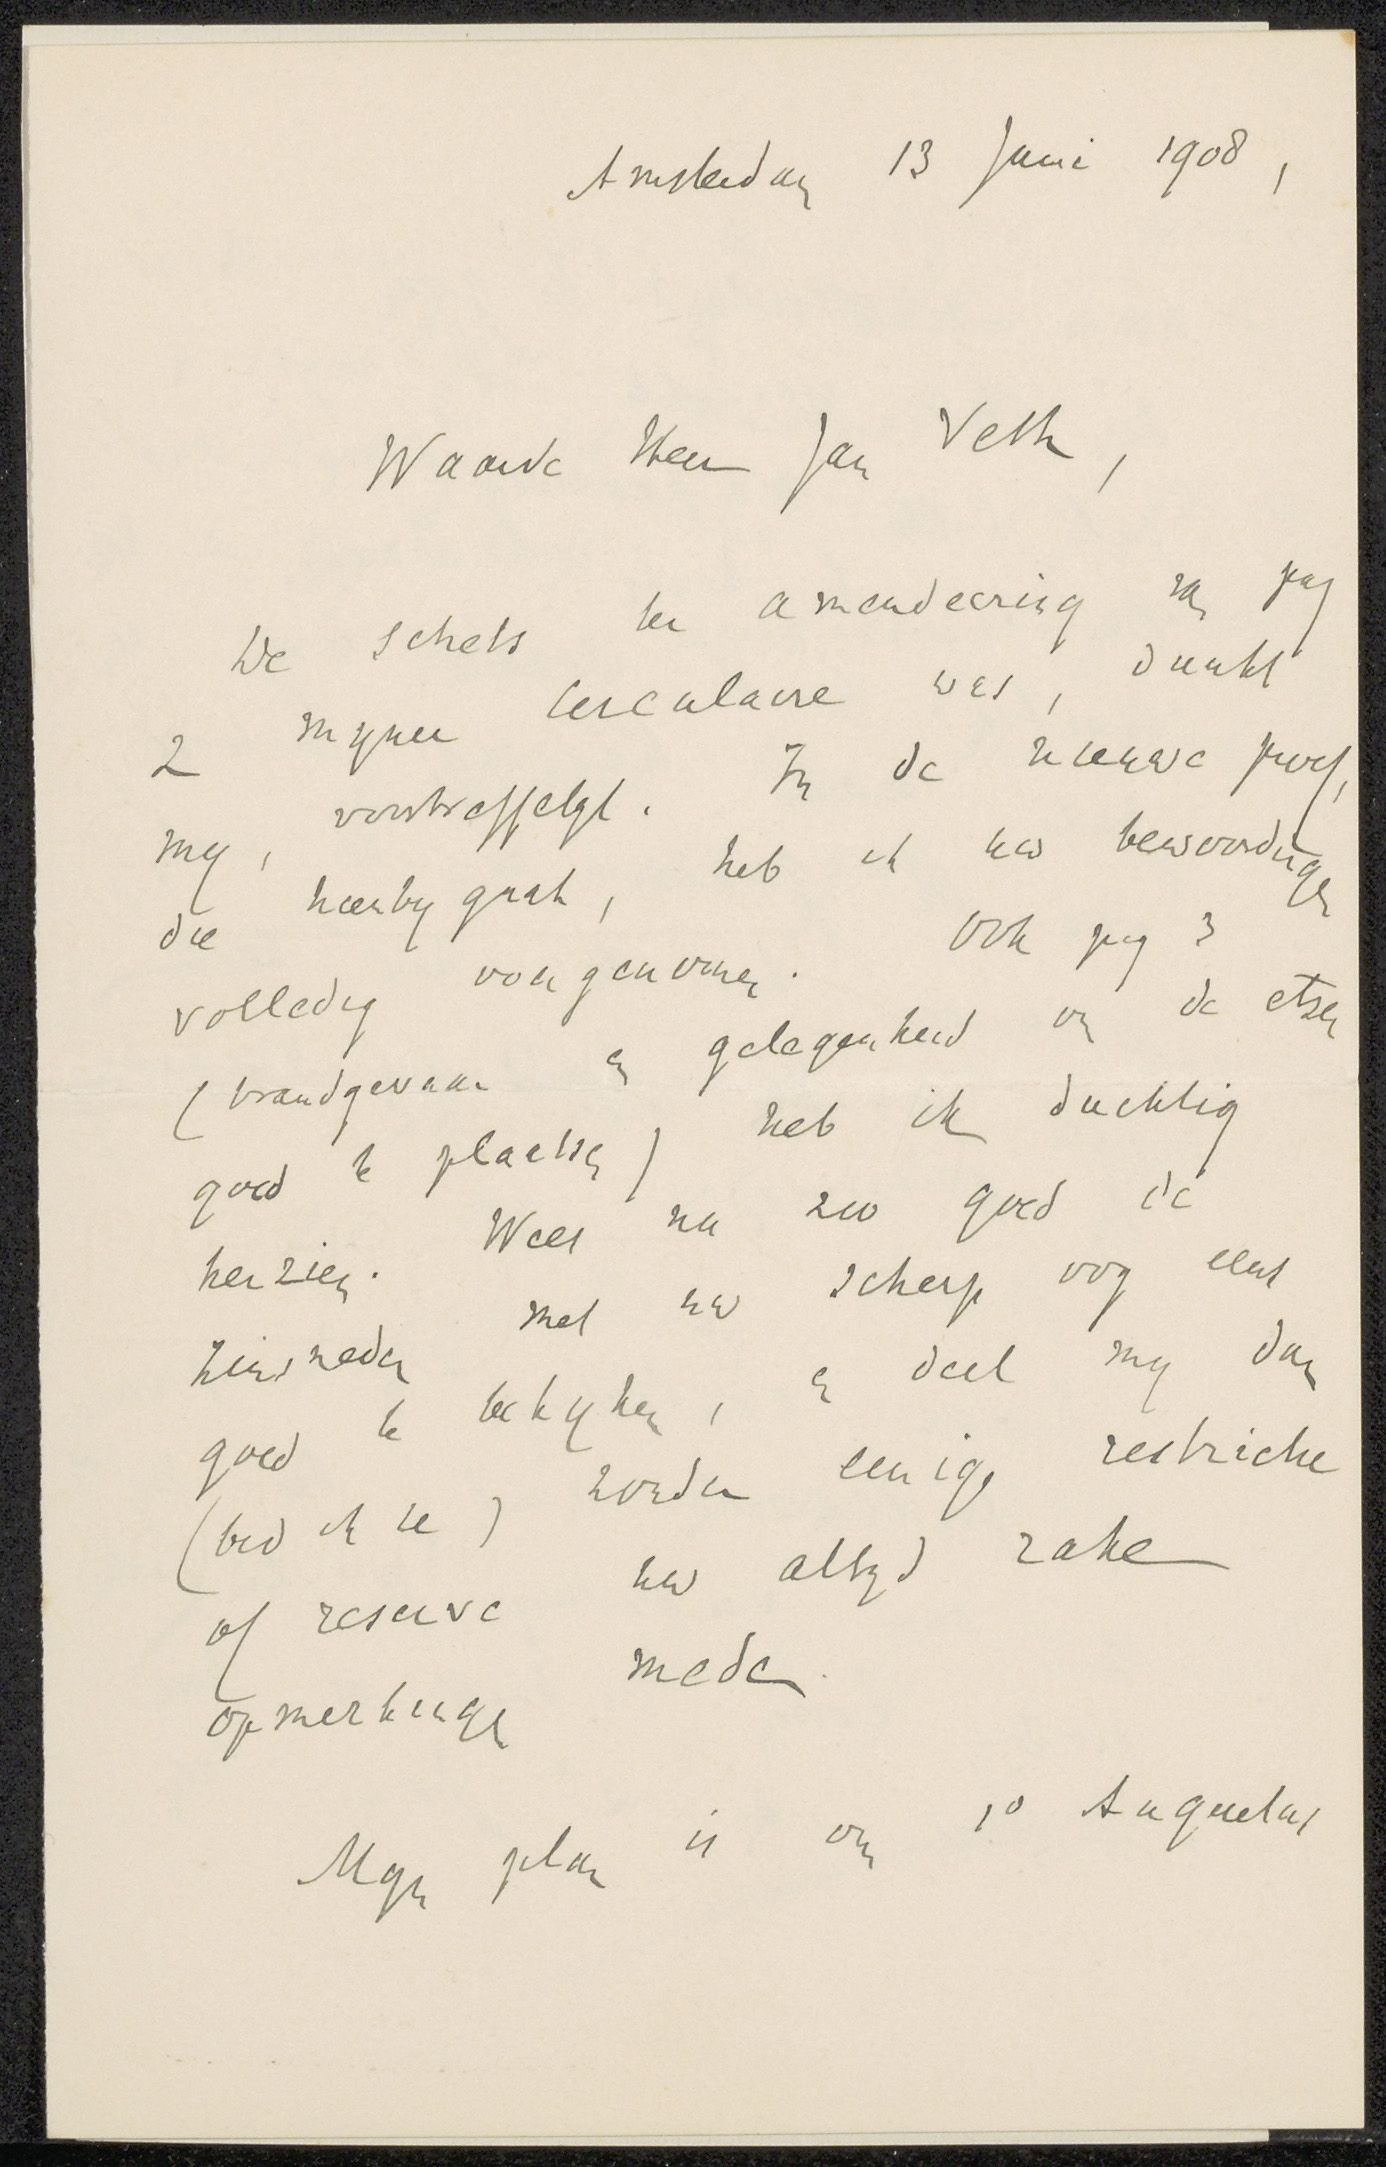 Amsterdam 13 Juni 1908,
Waarde Heer Jan Veth,
De schets ter amendeering van pag
2 mijner circulaire was, dunkt
mij, voortreffelijk. In de nieuwe proef,
die hierbij gaat, heb ik uw bewoordingen
volledig overgenomen. Ook pag 3
(brandgevaar en gelegenheid om de etsen
goed te plaatsen) heb ik duchtig
herzien. Wees nu zoo goed de
zinsneden met uw scherp oog eens
goed te bekijken, en deel mij dan
(bid ik U) zonder eenige restrictie
of reserve uw altijd rake
opmerkingen mede.
Mijn plan is om 10 Augustus